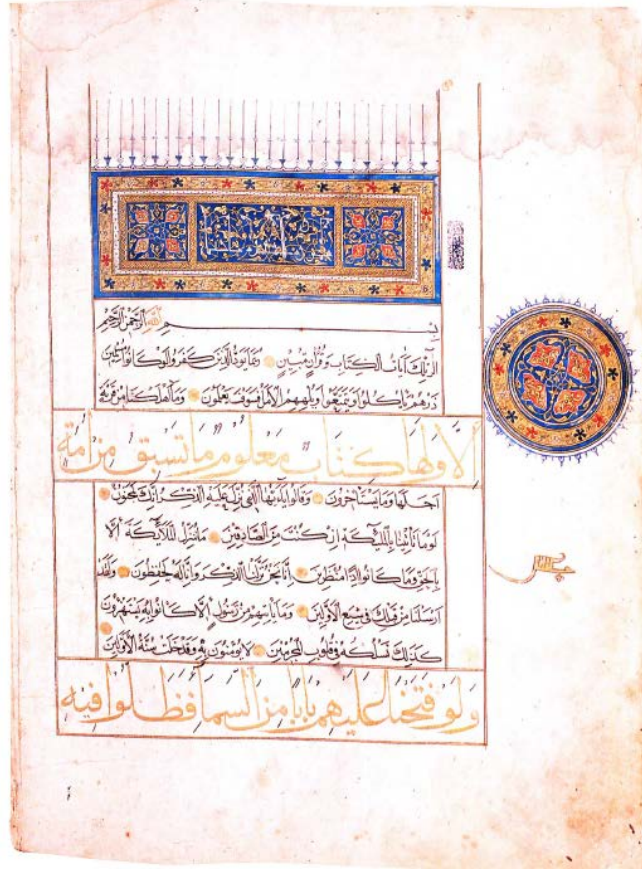 بسم الله الرحمن الرحيم
الر تلك آيات الكتاب وقرآن مبين ربما يود الذين كفروا لو كانوا مسلمين
ذرهم يأكلوا ويتمتعوا ويلههم الأمل فسوف يعلمون وما أهلكنا من قرية
إلا ولها كتاب معلوم ما تسبق من أمة
أجلها وما يستأخرون وقالوا يا أيها الذي نزل عليه الذكر إنك لمجنون
لو ما تأتينا بالملئكة إن كنت من الصادقين ما ننزل الملائكة إلا
بالحق وما كانوا إذا منظرين إنا نحن نزلنا الذكر وإنا له لحفظون ولقد
أرسلنا من قبلك في شيع الأولين وما يأتيهم من رسول إلا كانوا به يستهزؤن
كذلك نسلكه في قلوب المجرمين لا يؤمنون به وقد خلت سنة الأولين
ولو فتحنا عليهم بابا من السما فظلوا فيه